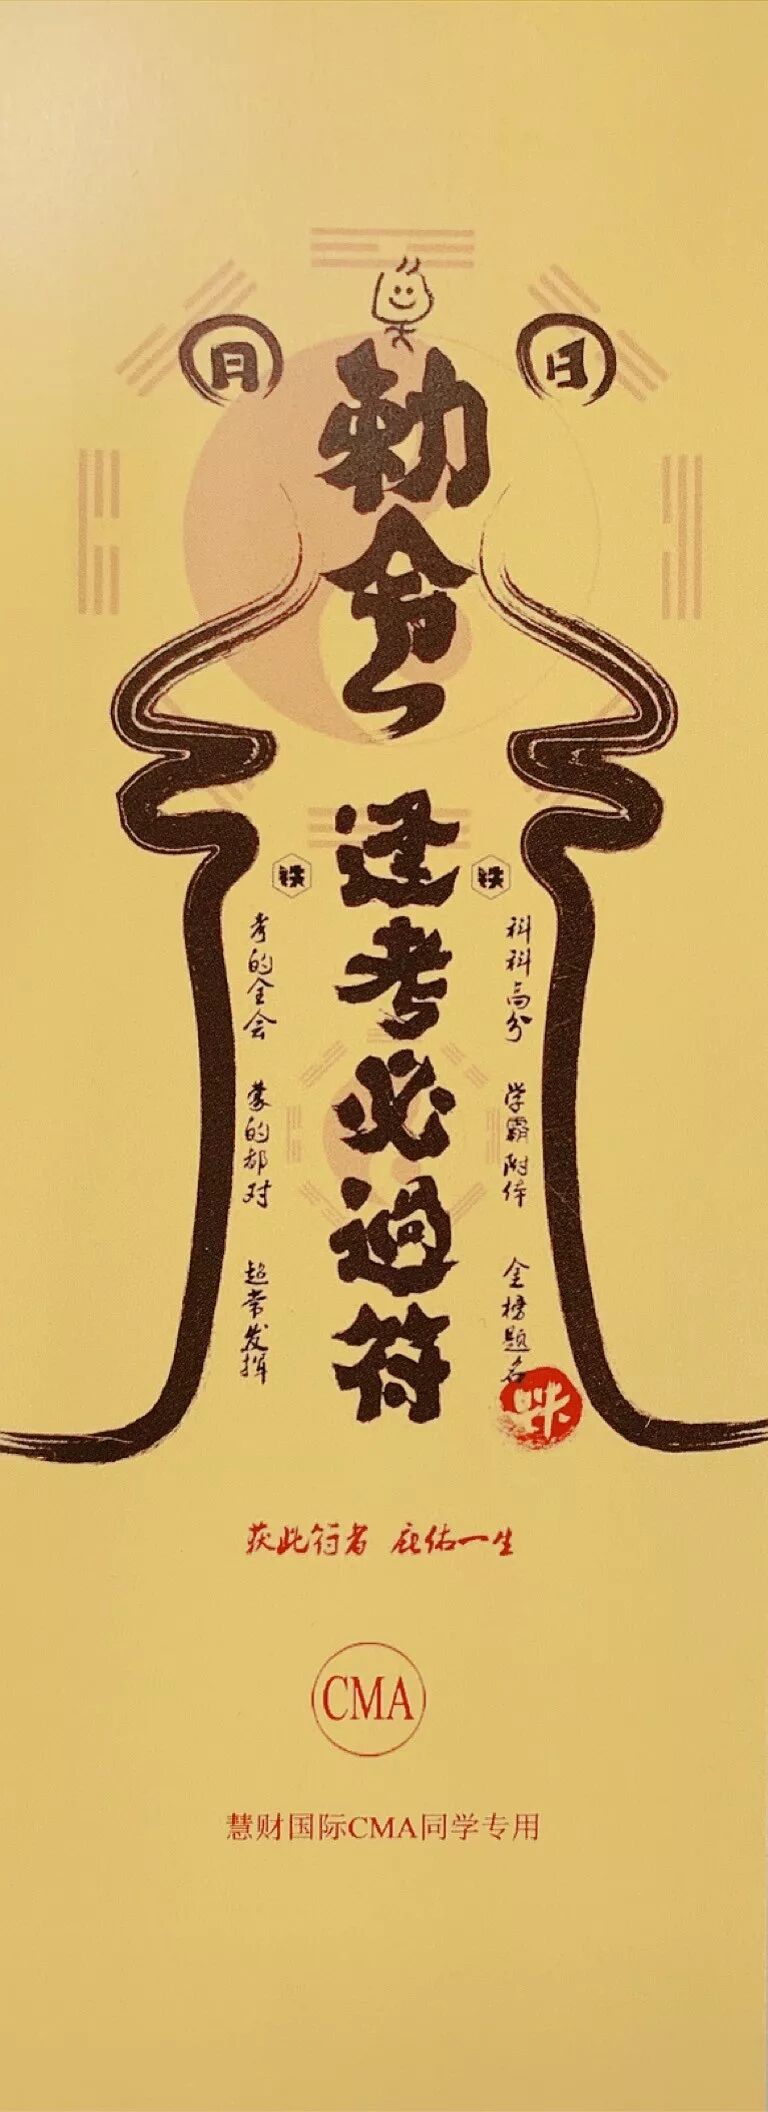 月
日
勅令
逢考必過符
科科高分 学霸附体 金榜题名
考的全会 蒙的都对 超常发挥
获此符者 庇佑一生
CMA
慧财国际CMA同学专用